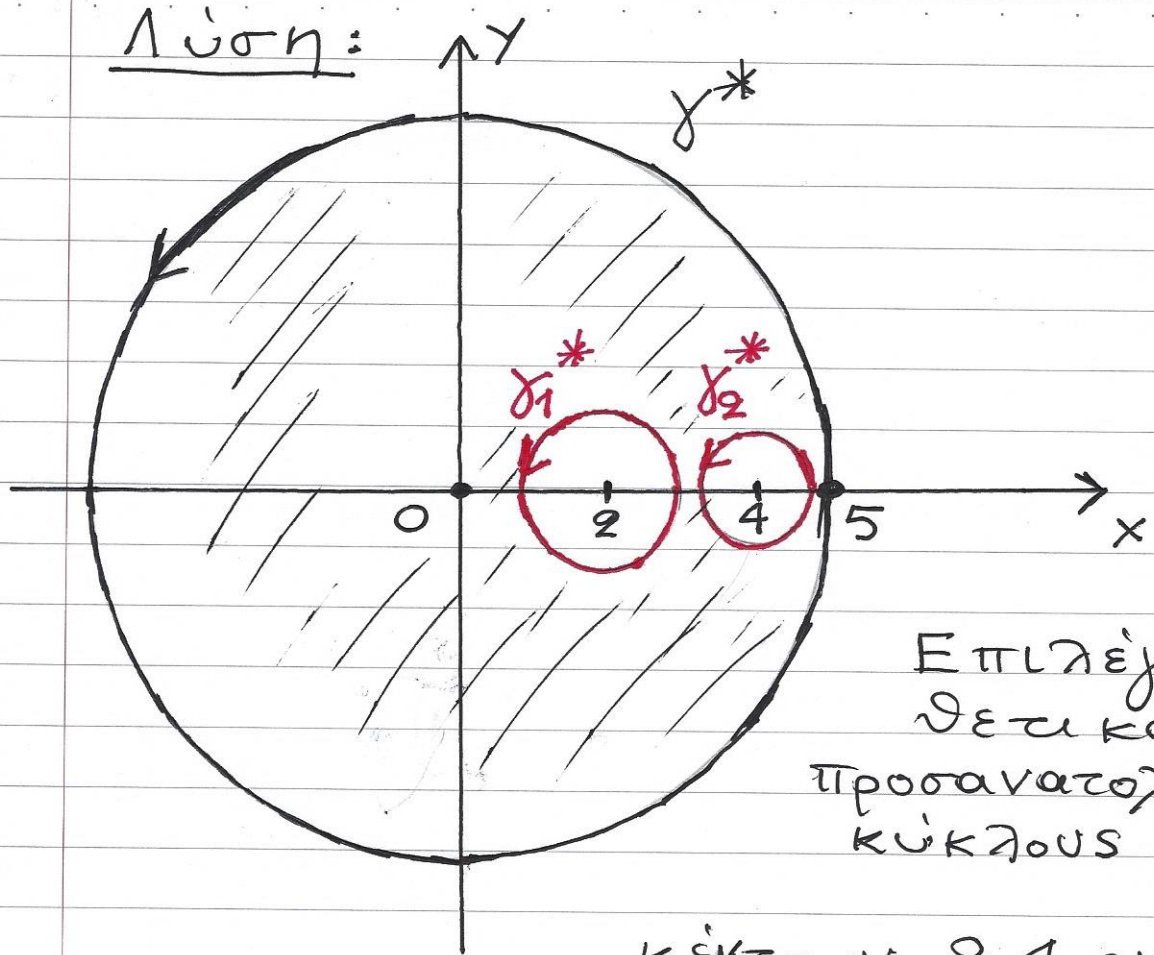 Λύση:
y
γ*
γ1* γ2*
0 2 4 5
x
Επιλέγ
θετικ
προσανατολ
κύκλους